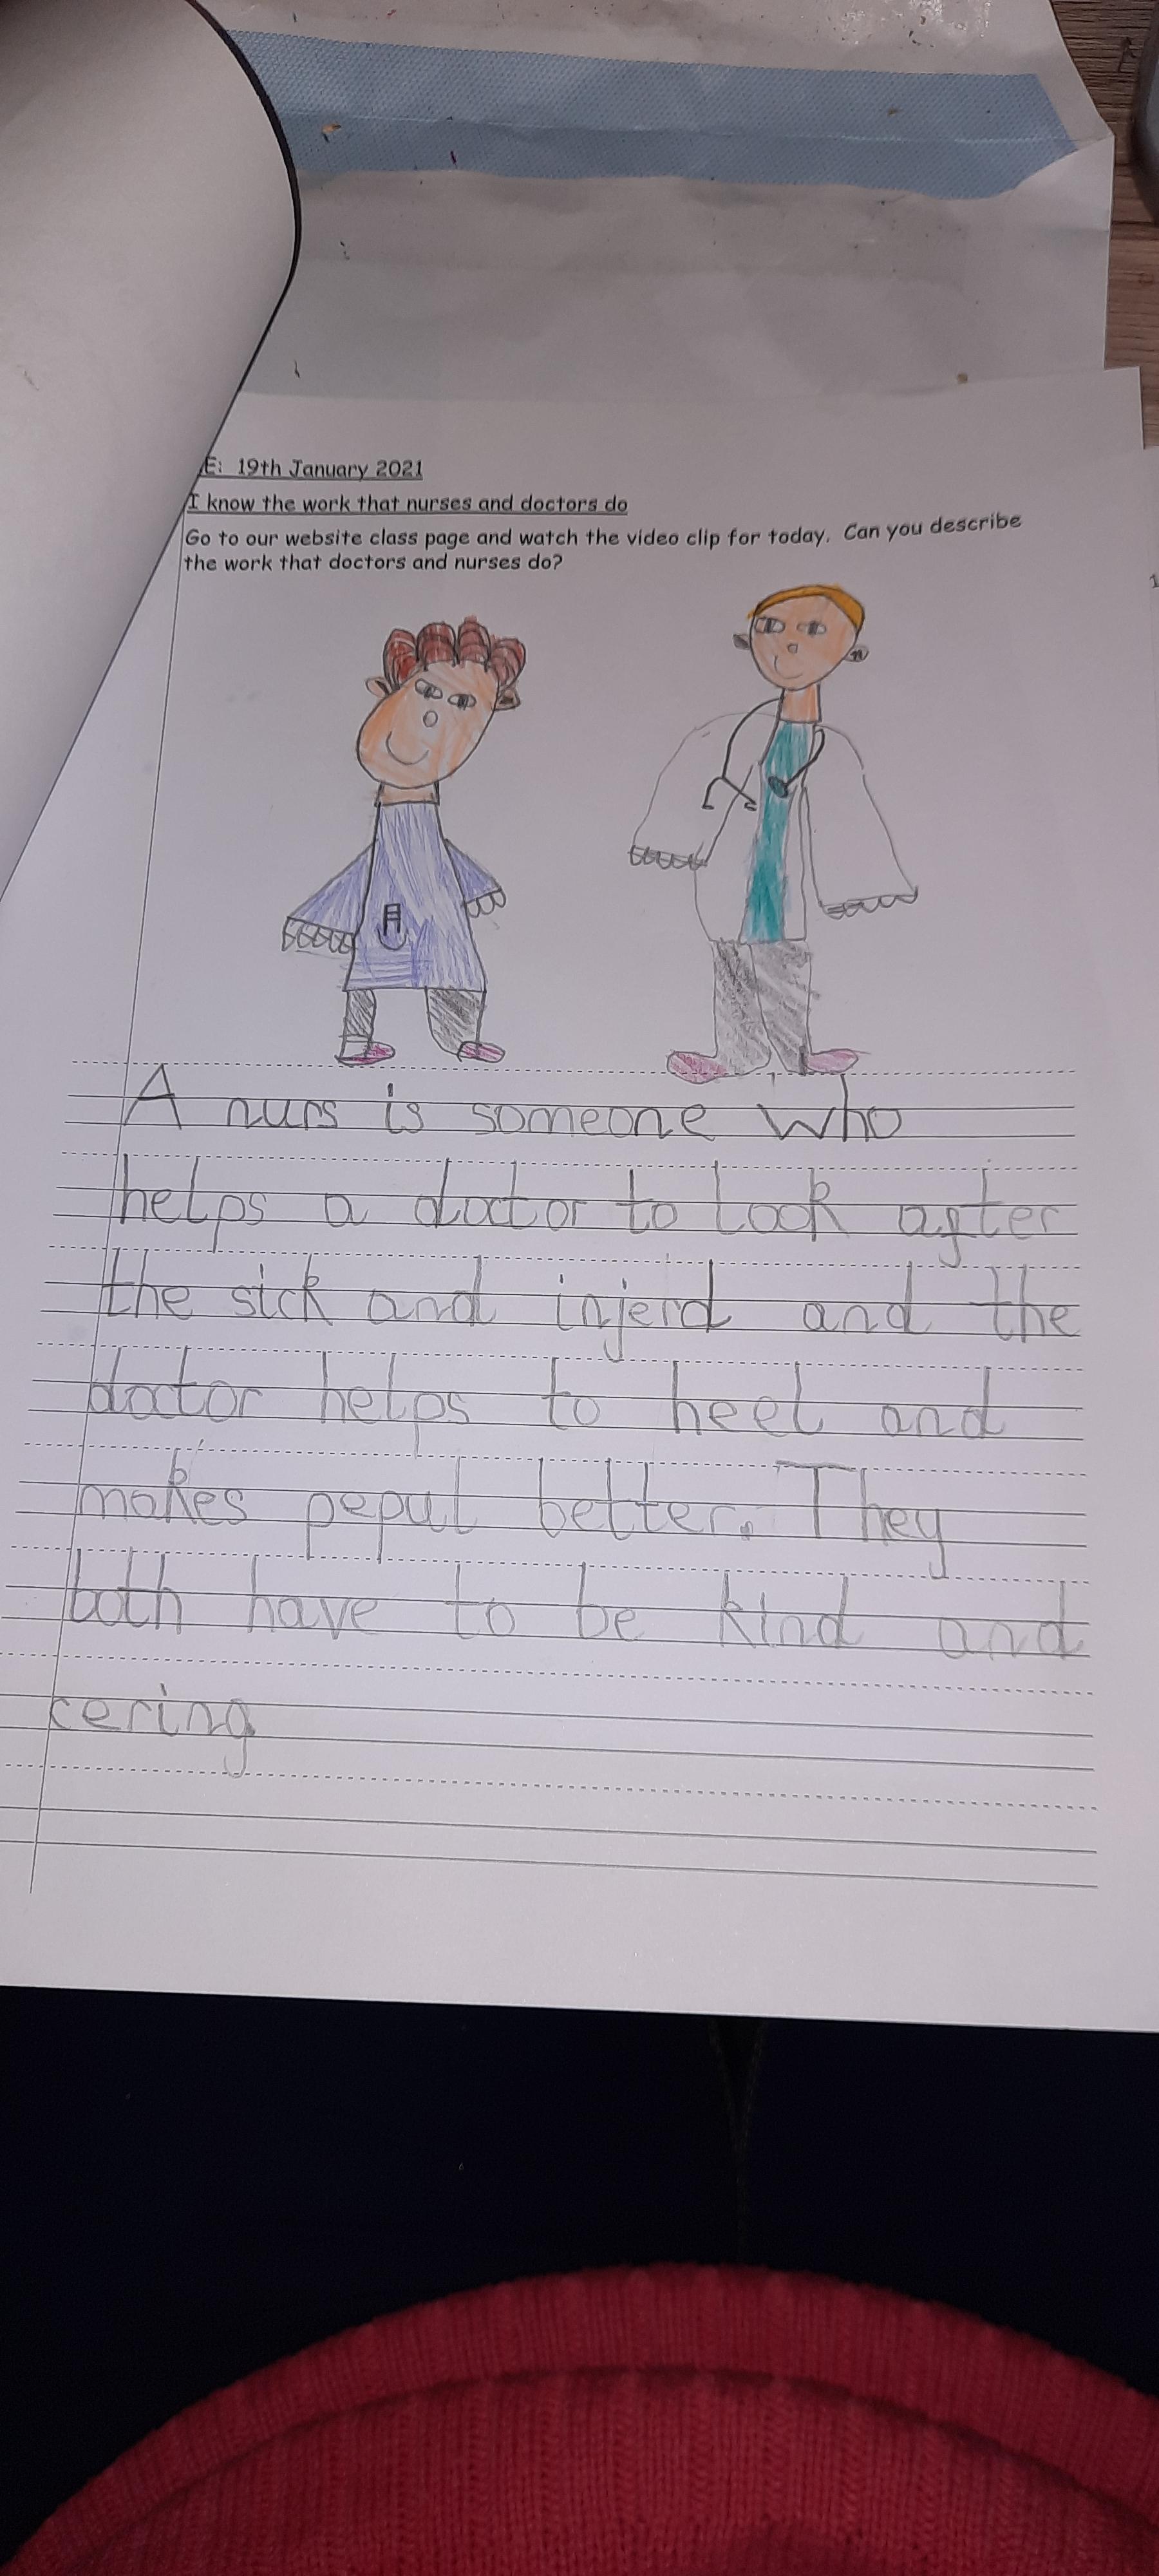 E: 19th January 2021
I know the work that nurses and doctors do
Go to our website class page and watch the video clip for today. Can you describe
the work that doctors and nurses do?
A nurs is someone who
helps a doctor to look after
the sick and injerd and the
doctor helps to heel and
makes pepul better. They
both have to be kind and
cering